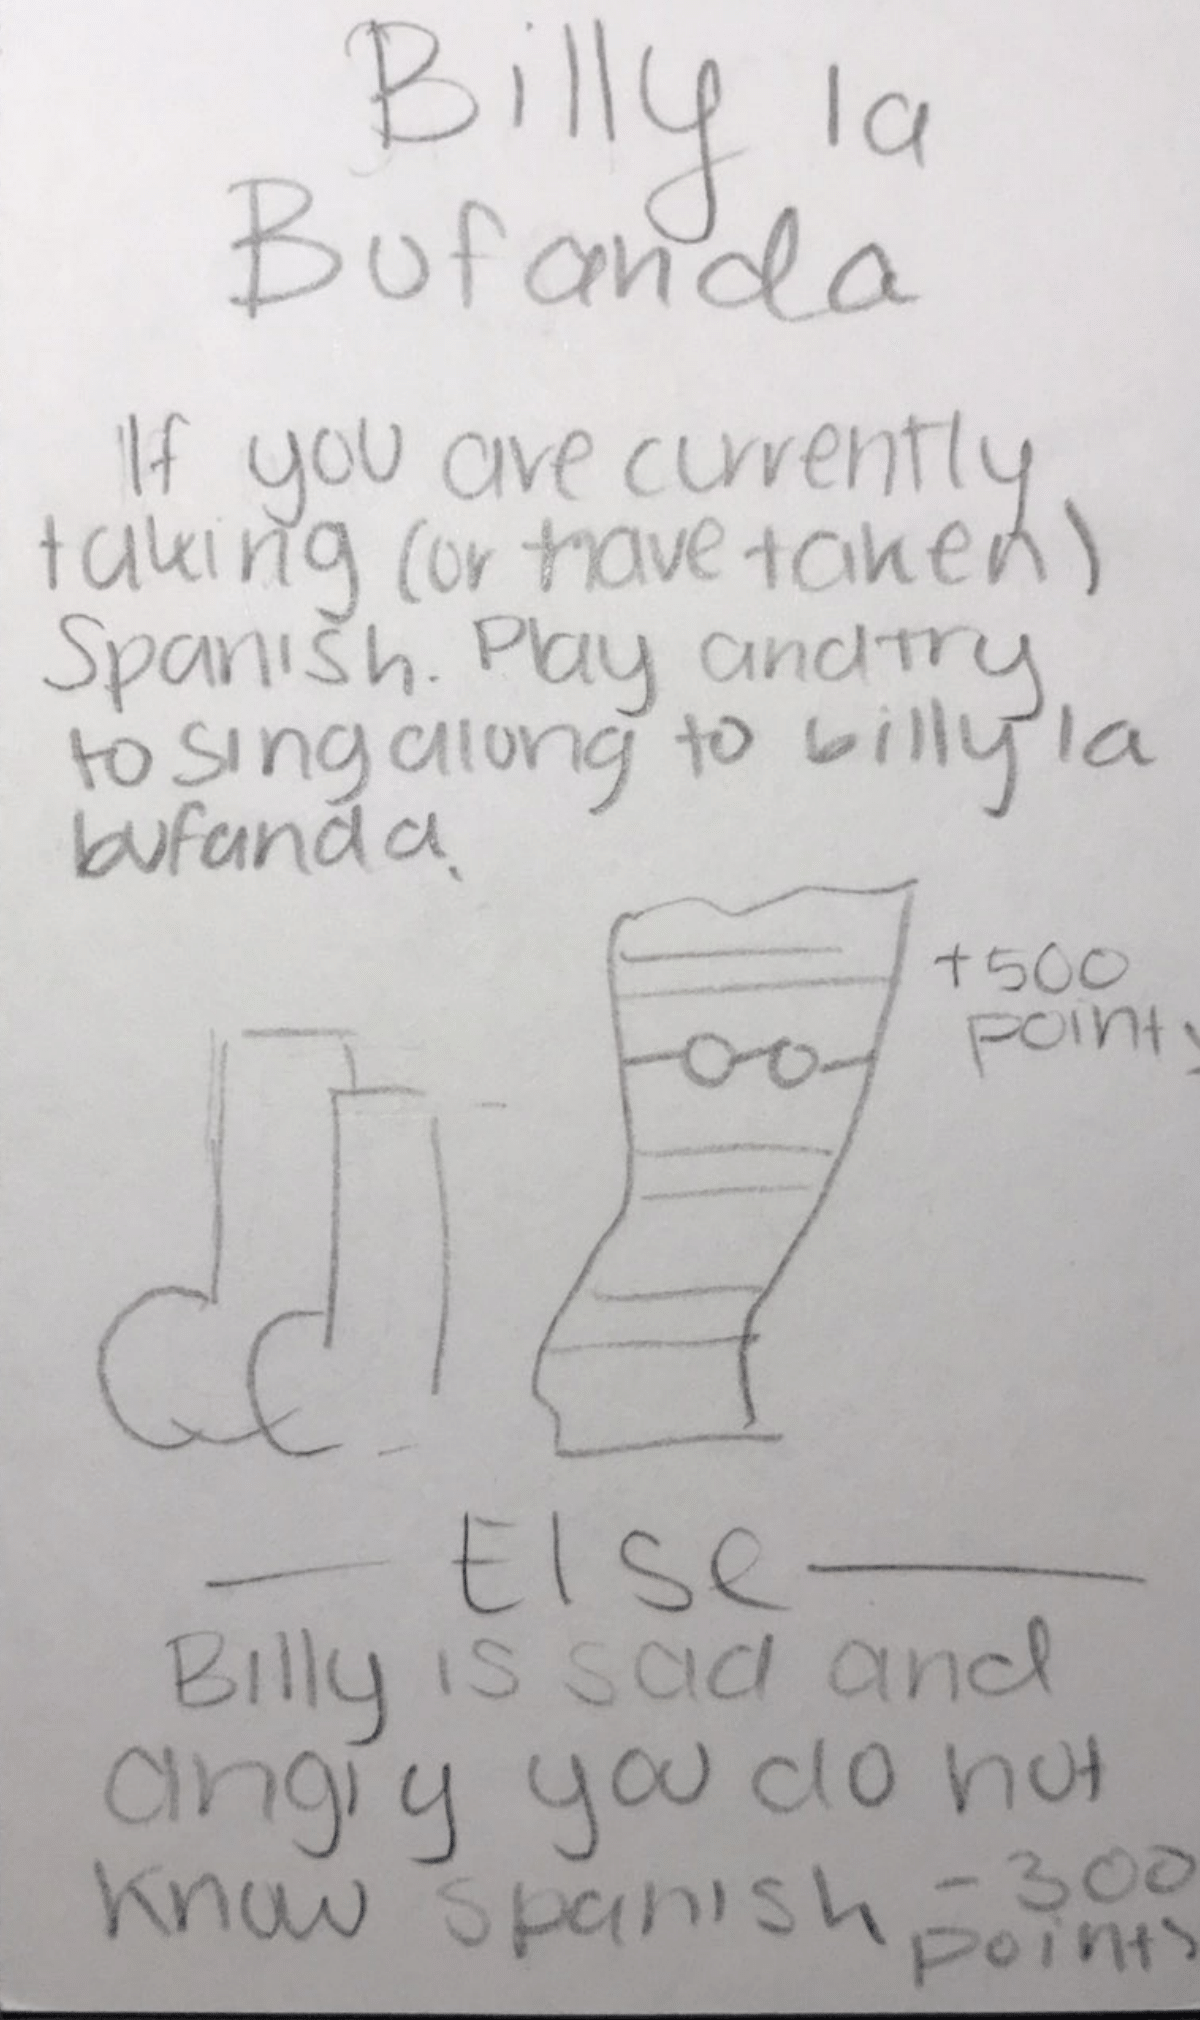 Billy la
Bufanda
If you are currently
taking (or have taken)
Spanish. Play and try
to sing along to billy la
bufanda.
+500
points
Else
Billy is sad and
angry you do not
know spanish -300
points